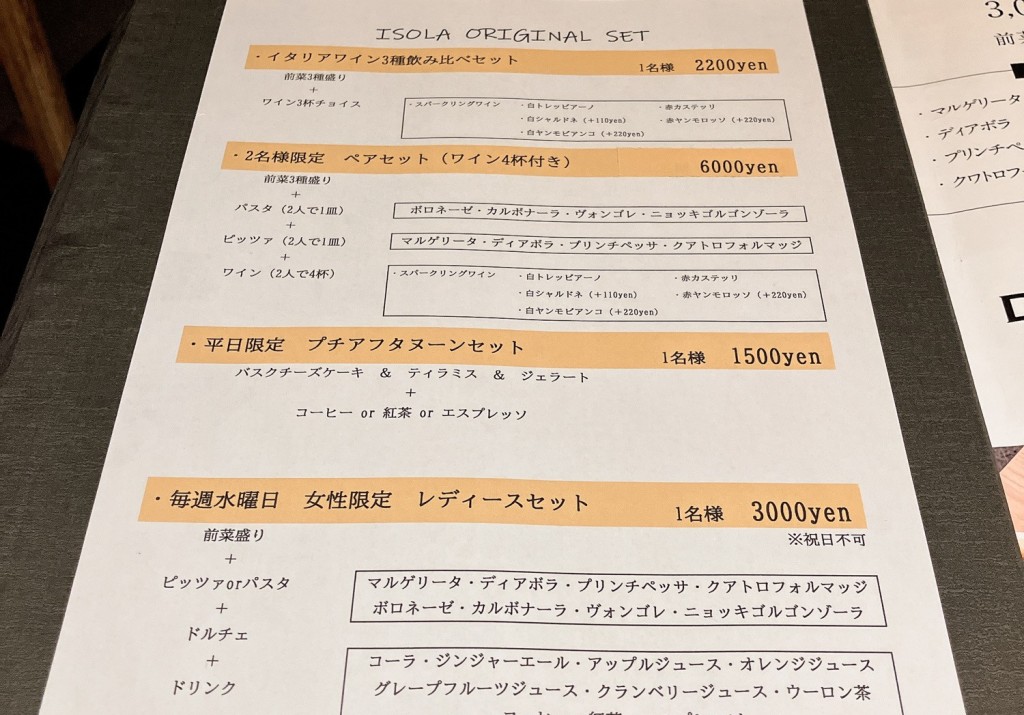 ISOLA ORIGINAL SET
・イタリアワイン3種飲み比べセット 1名様 2200yen
前菜3種盛り
+
ワイン3杯チョイス
・スパークリングワイン ・白トレッビアーノ ・赤カステッリ
・白シャルドネ（+110yen） ・赤ヤンモロッソ（+220yen）
・白ヤンモビアンコ（+220yen）
・2名様限定 ペアセット（ワイン4杯付き） 6000yen
前菜3種盛り
+
パスタ（2人で1皿） ボロネーゼ・カルボナーラ・ヴォンゴレ・ニョッキゴルゴンゾーラ
+
ピッツァ（2人で1皿） マルゲリータ・ディアボラ・プリンチペッサ・クアトロフォルマッジ
+
ワイン（2人で4杯）
・スパークリングワイン ・白トレッビアーノ ・赤カステッリ
・白シャルドネ（+110yen） ・赤ヤンモロッソ（+220yen）
・白ヤンモビアンコ（+220yen）
・平日限定 プチアフタヌーンセット 1名様 1500yen
バスクチーズケーキ & ティラミス & ジェラート
+
コーヒー or 紅茶 or エスプレッソ
・毎週水曜日 女性限定 レディースセット 1名様 3000yen
※祝日不可
前菜盛り
+
ピッツァorパスタ
+
ドルチェ
+
ドリンク
マルゲリータ・ディアボラ・プリンチペッサ・クアトロフォルマッジ
ボロネーゼ・カルボナーラ・ヴォンゴレ・ニョッキゴルゴンゾーラ
コーラ・ジンジャーエール・アップルジュース・オレンジジュース
グレープフルーツジュース・クランベリージュース・ウーロン茶
3,0
前菜
・マルゲリータ
・ディアボラ
・プリンチペ
・クワトロフ